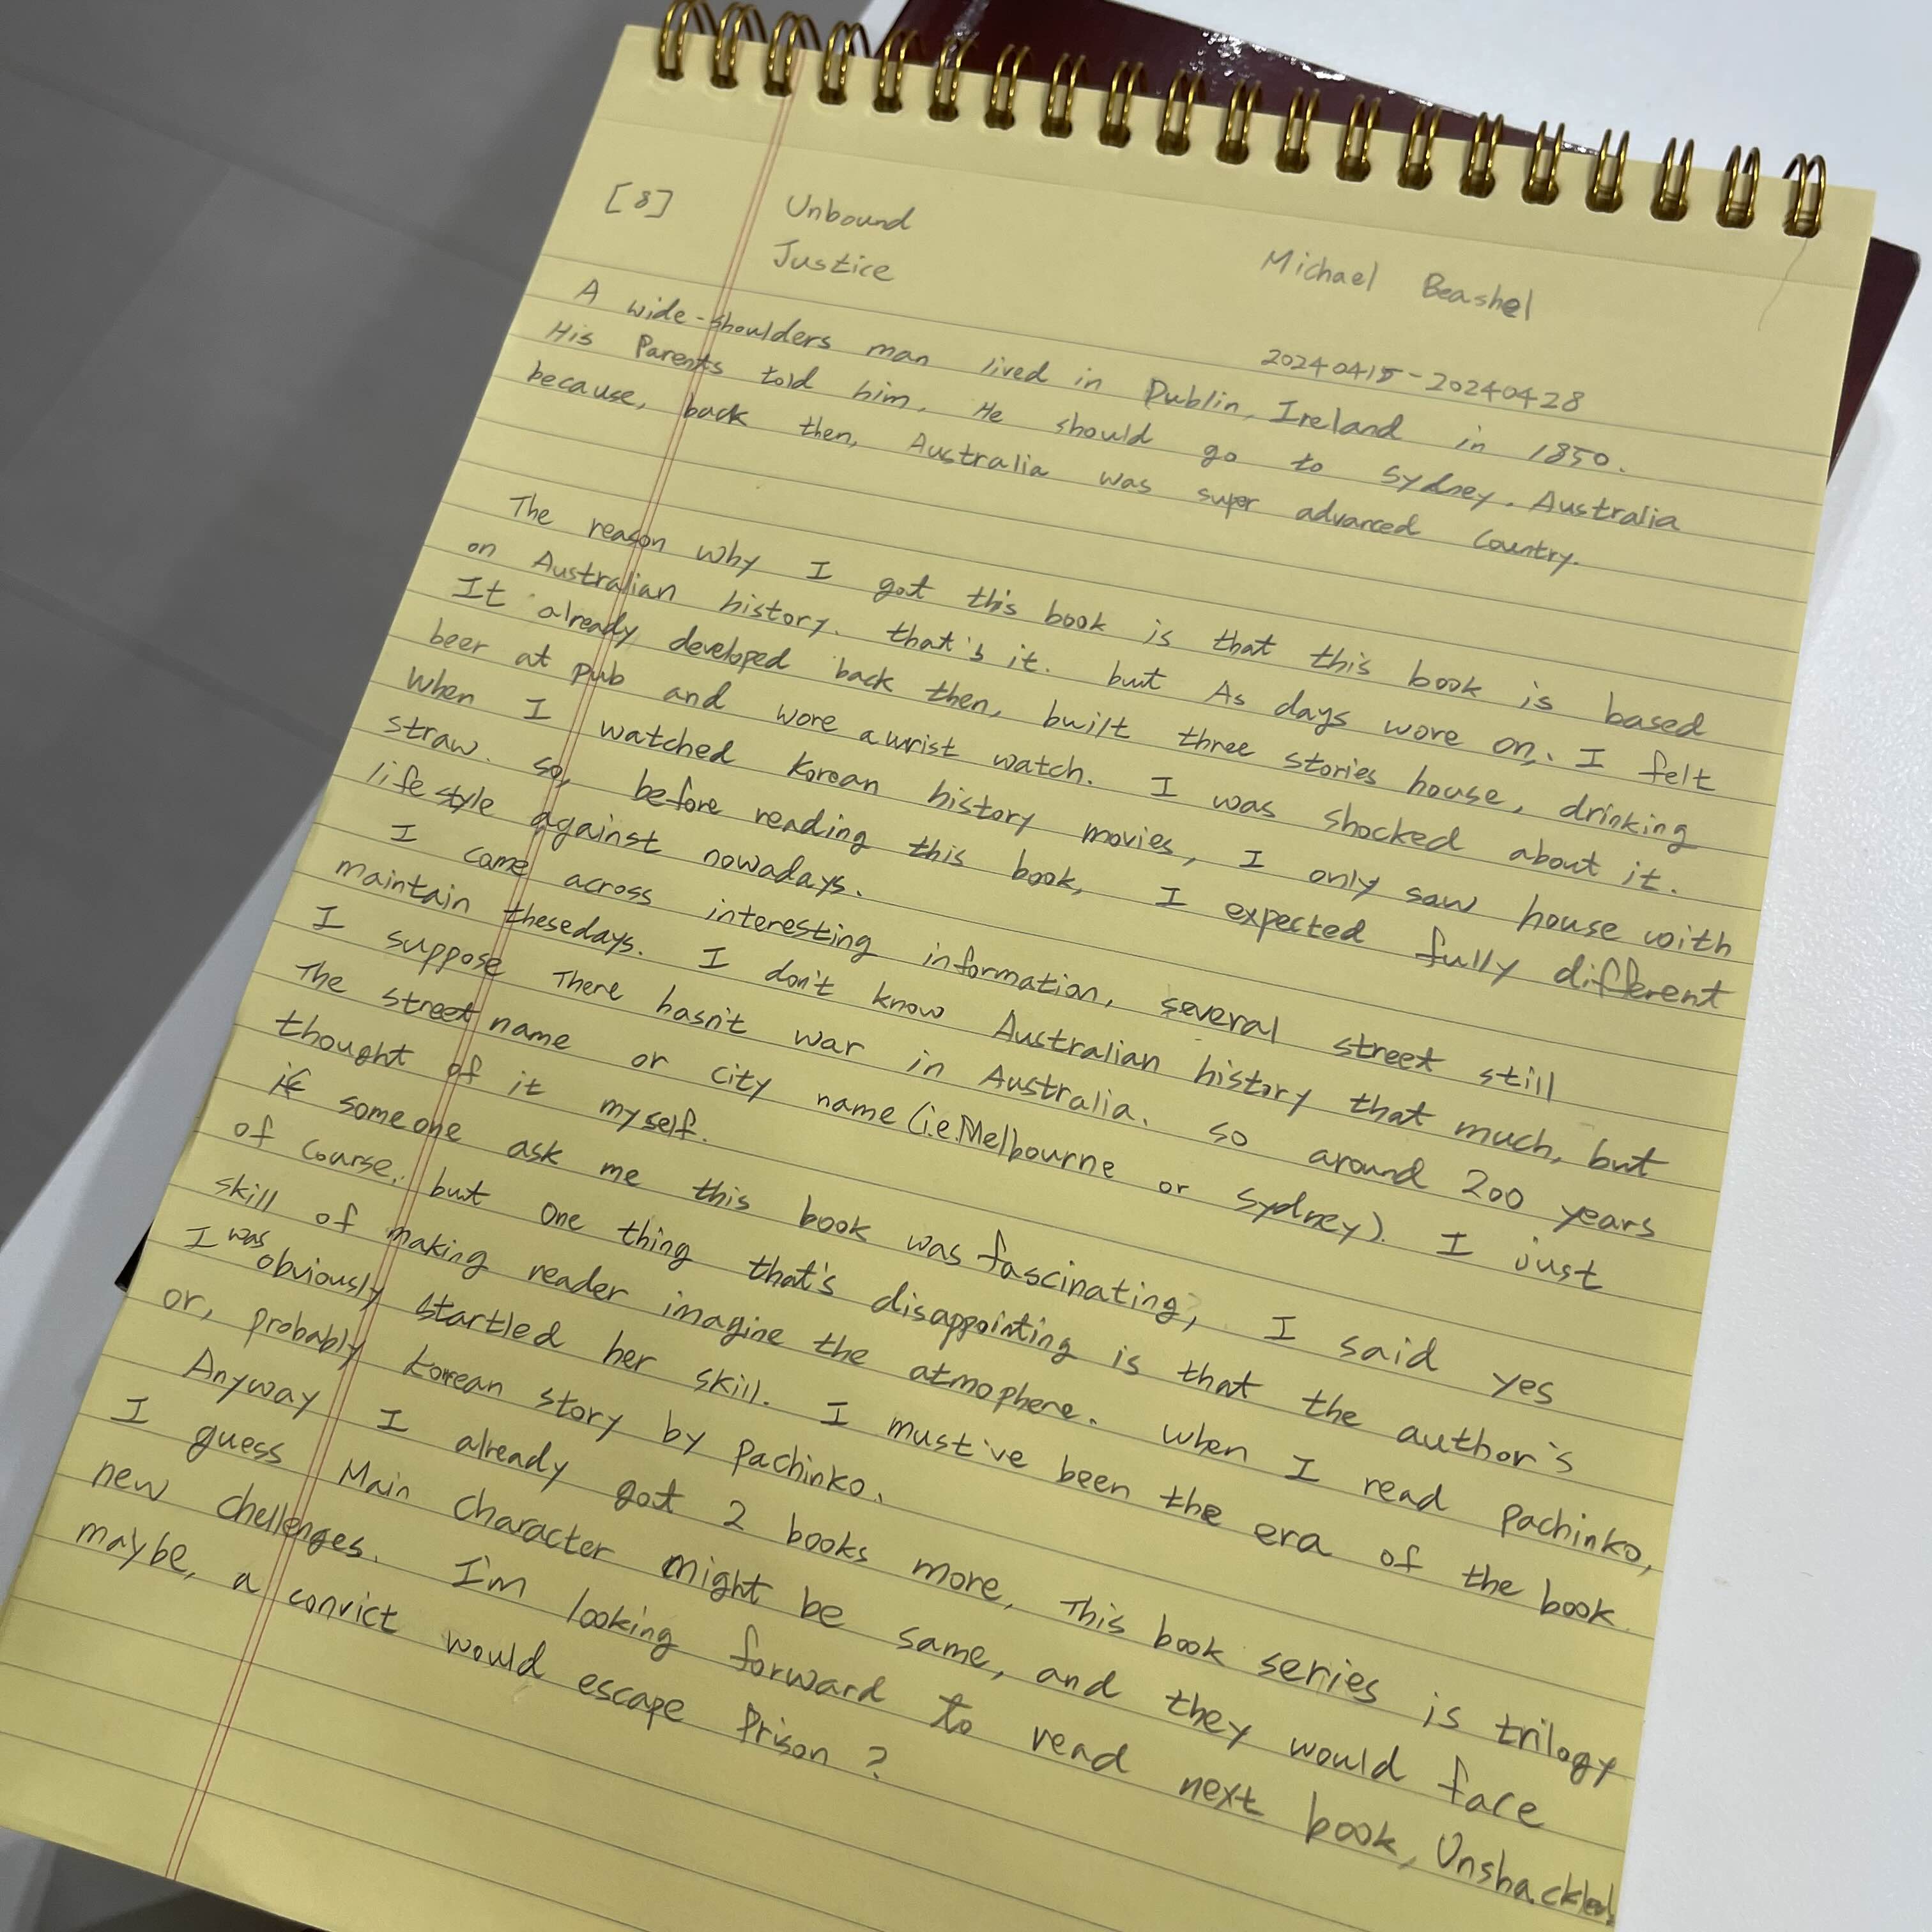 [8] Unbound
Justice Michael Beashel
20240415-20240428
A wide-shoulders man lived in Dublin, Ireland in 1850.
His Parents told him, He should go to Sydney, Australia
because, back then, Australia was super advanced Country.
The reason why I got this book is that this book is based
on Australian history. that's it. but As days wore on, I felt
It already developed back then, built three stories house, drinking
beer at pub and wore a wrist watch. I was shocked about it.
When I watched Korean history movies, I only saw house with
straw. so, before reading this book, I expected fully different
life style against nowadays.
I came across interesting information, several street still
maintain thesedays. I don't know Australian history that much, but
I suppose There hasn't war in Australia. so around 200 years
The street name or city name (i.e. Melbourne or Sydney). I just
thought of it myself.
if someone ask me this book was fascinating, I said yes
of course. but one thing that's disappointing is that the author's
skill of making reader imagine the atmophere. When I read pachinko,
I was obviously startled her skill. I must've been the era of the book.
or, probably Korean story by pachinko.
Anyway I already got 2 books more, This book series is trilogy
I guess Main Character might be same, and they would face
new chellenges. I'm looking forward to read next book, Unshackled
maybe, a convict would escape Prison?